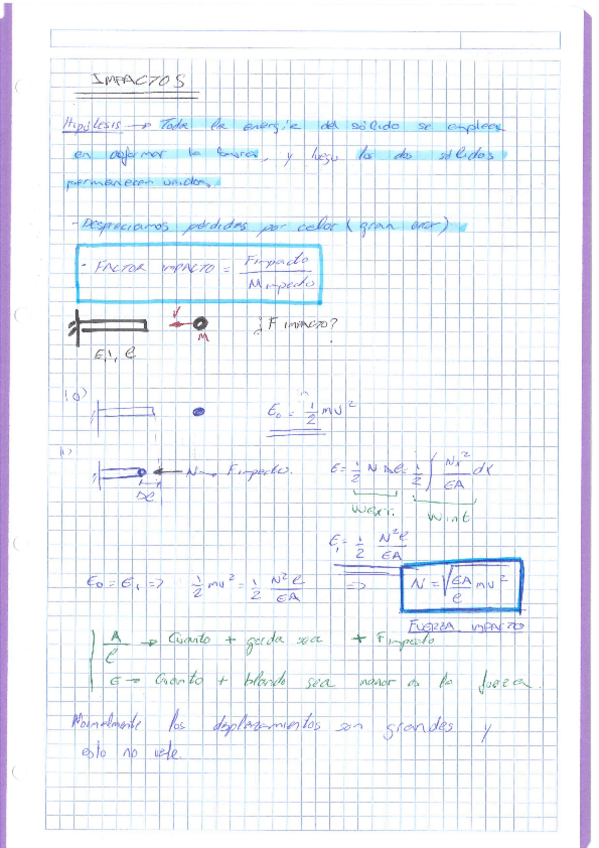 IMPACTOS
Hipótesis → Toda la energía del sólido se emplea
en deformar la barra, y luego los dos sólidos
permanecen unidos.
- Despreciamos pérdidas por calor (gran error)
- FACTOR IMPACTO = Fimpacto / Mimpacto
V
M
¿F IMPACTO?
E, l
E₀ = 1/2 mv²
N → Fimpacto.
Δl
E = 1/2 N Δl = 1/2 ∫ Nx²/EA dx
Wext. Wint
E₁ = 1/2 N²l/EA
E₀ = E₁ => 1/2 mv² = 1/2 N²l/EA => N = √(EA/l mv²)
FUERZA IMPACTO
A/l → Cuanto + gorda sea + Fimpacto
E → Cuanto + blando sea menor es la fuerza.
Normalmente los desplazamientos son grandes y
esto no vale.